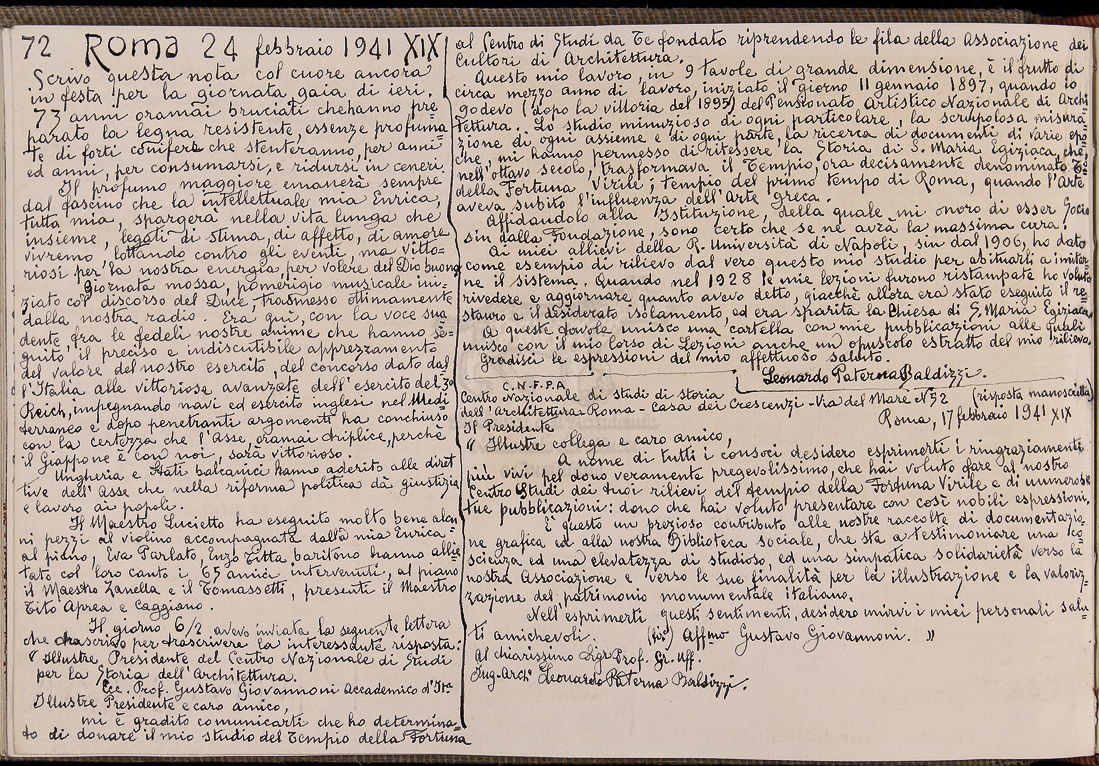 72 Roma 24 febbraio 1941 XIX
Scrivo questa nota col cuore ancora
in festa per la giornata gaia di ieri.
73 anni oramai bruciati che hanno pre
parato la legna resistente, essenze profuma-
te di forti conifere che stenteranno, per anni
ed anni, per consumarsi, e ridursi in ceneri.
Il profumo maggiore emanerà sempre
dal fascino che la intellettuale mia Enrica,
tutta mia, spargerà nella vita lunga che
insieme, legati di stima, di affetto, di amore
vivremo, lottando contro gli eventi, ma vitto-
riosi per la nostra energia, per volere del Dio buono.
Giornata mossa, pomerigio musicale ini-
ziato col discorso del Duce, trasmesso ottimamente
dalla nostra radio. Era, qui, con la voce sua
dente fra le fedeli nostre anime che hanno se-
guito il preciso e indiscutibile apprezzamento
del valore del nostro esercito, del concorso dato dal
l'Italia alle vittoriose avanzate dell'esercito del 3º
Reich, impegnando navi ed esercito inglesi nel Medi
terraneo e dopo penetranti argomenti ha conchiuso
con la certezza che l'Asse, oramai triplice, perchè
il Giappone è con noi, sarà vittorioso.
Ungheria e Stati balcanici hanno aderito alle diret
tive dell'Asse che nella riforma politica dà giustizia
e lavoro ai popoli.
Il Maestro Lucietto ha eseguito molto bene alcu
ni pezzi al violino accompagnato dalla mia Enrica
al piano, Eva Parlato, Enzo Titta, baritono hanno allie
tato col loro canto i 65 amici intervenuti, al piano
il Maestro Zanella e il Tomassetti, presenti il Maestro
Tito Aprea e Caggiano.
Il giorno 6/2 avevo inviata la seguente lettera
che trascrivo per trascrivere la interessante risposta:
"Illustre Presidente del Centro Nazionale di Studi
per la Storia dell'Architettura.
Ecc. Prof. Gustavo Giovannoni Accademico d'It.
Illustre Presidente e caro amico,
mi è gradito comunicarti che ho determina-
to di donare il mio studio del Tempio della Fortuna
al Centro di Studi da Te fondato riprendendo le fila della Associazione dei
Cultori di Architettura.
Questo mio lavoro, in 9 tavole di grande dimensione, è il frutto di
circa mezzo anno di lavoro, iniziato il giorno 11 gennaio 1897, quando io
godevo (dopo la vittoria del 1895) del Pensionato Artistico Nazionale di Archi
tettura. Lo studio minuzioso di ogni particolare, la scrupolosa misura-
zione di ogni assieme e di ogni parte, la ricerca di documenti di varie epo
che, mi hanno permesso di ritessere la Storia di S. Maria Egiziaca, che,
nell'ottavo secolo, trasformava il Tempio, ora decisamente denominato
della Fortuna Virile; tempio del primo tempo di Roma, quando l'Arte
aveva subìto l'influenza dell'Arte Greca.
Affidandolo alla Istituzione, della quale mi onoro di esser Socio
sin dalla Fondazione, sono certo che se ne avrà la massima cura.
Ai miei allievi della R. Università di Napoli, sin dal 1906, ho dato
come esempio di rilievo dal vero questo mio studio per abituarli a imitar-
ne il sistema. Quando nel 1928 le mie lezioni furono ristampate ho voluto
rivedere e aggiornare quanto avevo detto, giacchè allora era stato eseguito il re
stauro e il desiderato isolamento, ed era sparita la Chiesa di S. Maria Egiziaca.
A queste tavole unisco una cartella con mie pubblicazioni alle quali
unisco con il mio Corso di Lezioni anche un opuscolo estratto del mio rilievo.
Gradisci le espressioni del mio affettuoso saluto.
Leonardo Paterna Baldizzi.
C.N.F.P.A.
Centro Nazionale di studi di storia (risposta manoscritta)
dell'Architettura-Roma-Casa dei Crescenzi-Via del Mare N 52
Il Presidente Roma, 17 febbraio 1941 XIX
"Illustre collega e caro amico,
A nome di tutti i consoci desidero esprimerti i ringraziamenti
più vivi pel dono veramente pregevolissimo, che hai voluto fare al nostro
Centro Studi dei tuoi rilievi del tempio della Fortuna Virile e di numerose
tue pubblicazioni: dono che hai voluto presentare con così nobili espressioni.
È questo un prezioso contributo alle nostre raccolte di documentazio-
ne grafica ed alla nostra Biblioteca sociale, che sta a testimoniare una co
scienza ed una elevatezza di studioso, ed una simpatica solidarietà verso la
nostra Associazione e verso le sue finalità per la illustrazione e la valoriz-
zazione del patrimonio monumentale italiano.
Nell'esprimerti questi sentimenti, desidero unirvi i miei personali salu
ti amichevoli. Affmo Gustavo Giovannoni. "
Al chiarissimo Sigr Prof. Gr. Uff.
Ing-Archº Leonardo Paterna Baldizzi.